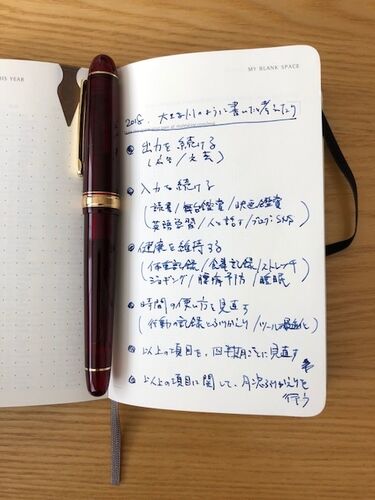 IS YEAR
MY BLANK SPACE
2018.
出力を続ける
入力を続ける
(読書/舞台鑑賞/映画鑑賞
英語学習/人と話す/ブログ・SNS)
健康を維持する
(体重記録/食事記録/ストレッチ
ジョギング/腰痛予防/睡眠)
時間の使い方を見直す
(行動の記録とふりかえり/ツール最適化)
以上の項目を、四半期ごとに見直す
以上の項目に関して、月次ふりかえりを
行う